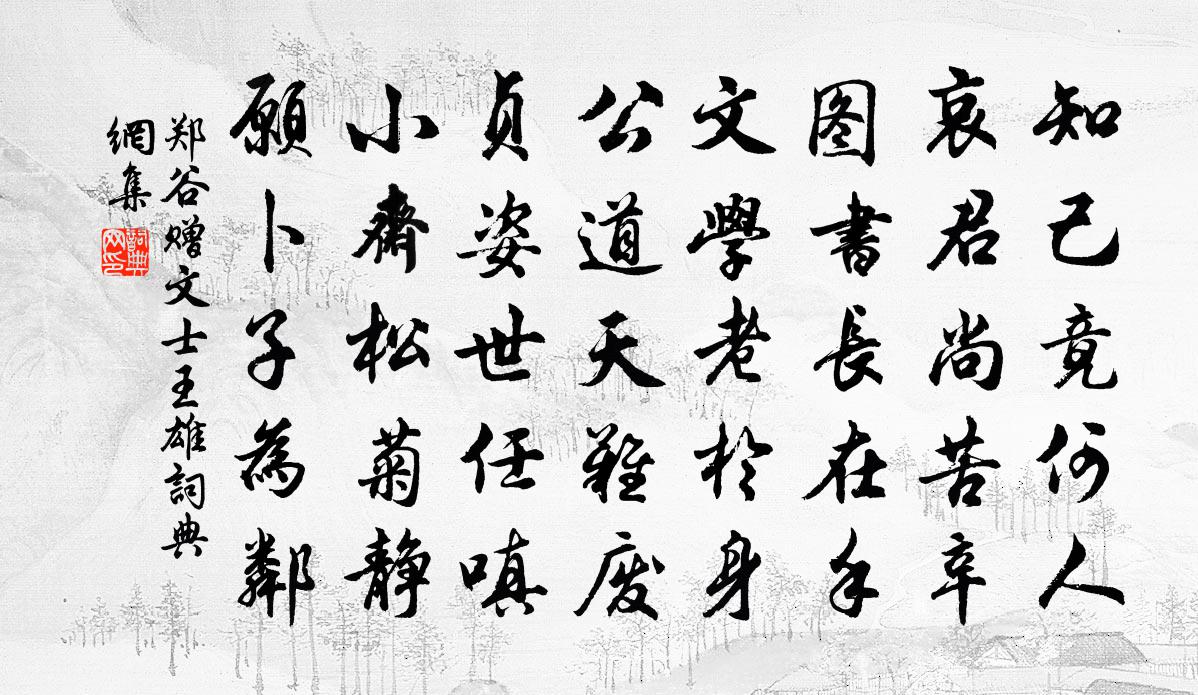 知己竟何人
哀君尚苦辛
图書長在手
文學老於身
公道天難废
贞姿世任嗔
小齋松菊静
願卜子為鄰
郑谷赠文士王雄詞典
網集
詞典网印